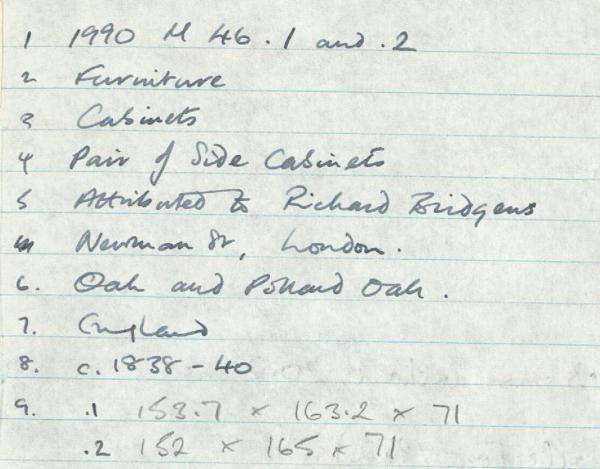 1 1990 M 46 .1 and .2
2 Furniture
3 Cabinets
4 Pair of Side Cabinets
5 Attributed to Richard Bridgens
Newman St, London.
6. Oak and Pollard Oak.
7. England
8. c. 1838 - 40
9. .1 153.7 x 163.2 x 71
.2 152 x 165 x 71